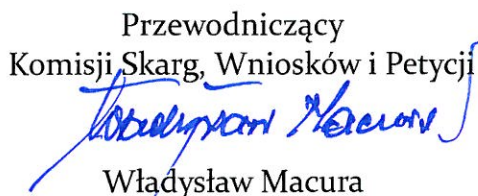 Przewodniczący
Komisji Skarg, Wniosków i Petycji
Władysław Macura
Władysław Macura